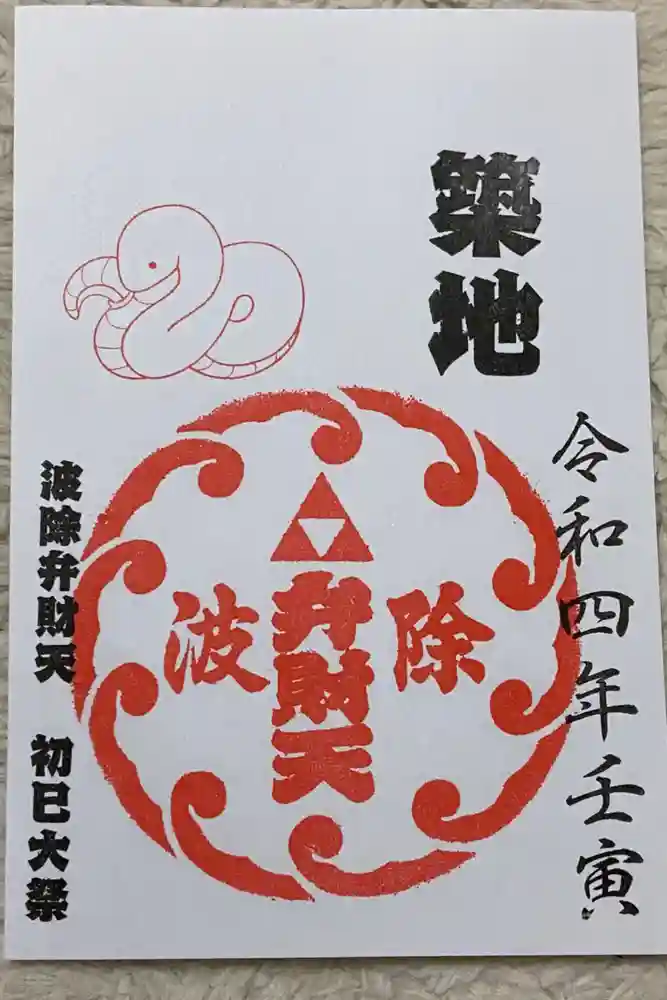 築地
令和四年壬寅
波 除
弁財天
波除弁財天 初巳大祭